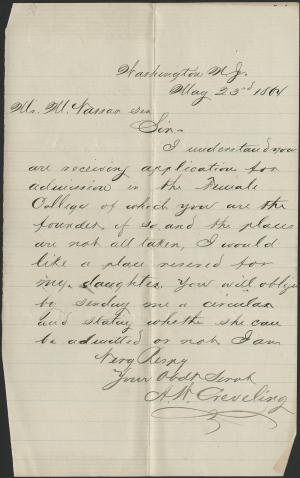 Washington N.J.
May 23rd 1864
Mr. M. Vassar
Sir -
I understand you
are receiving application for
admission in the Female
College of which you are the
founder, if so, and the places
are not all taken, I would
like a place reserved for
my daughter. You will oblige
by sending me a circular
and stating whether she can
be admitted or not. I am
Very Respy
Your Obdt Servt
A. W. Creveling